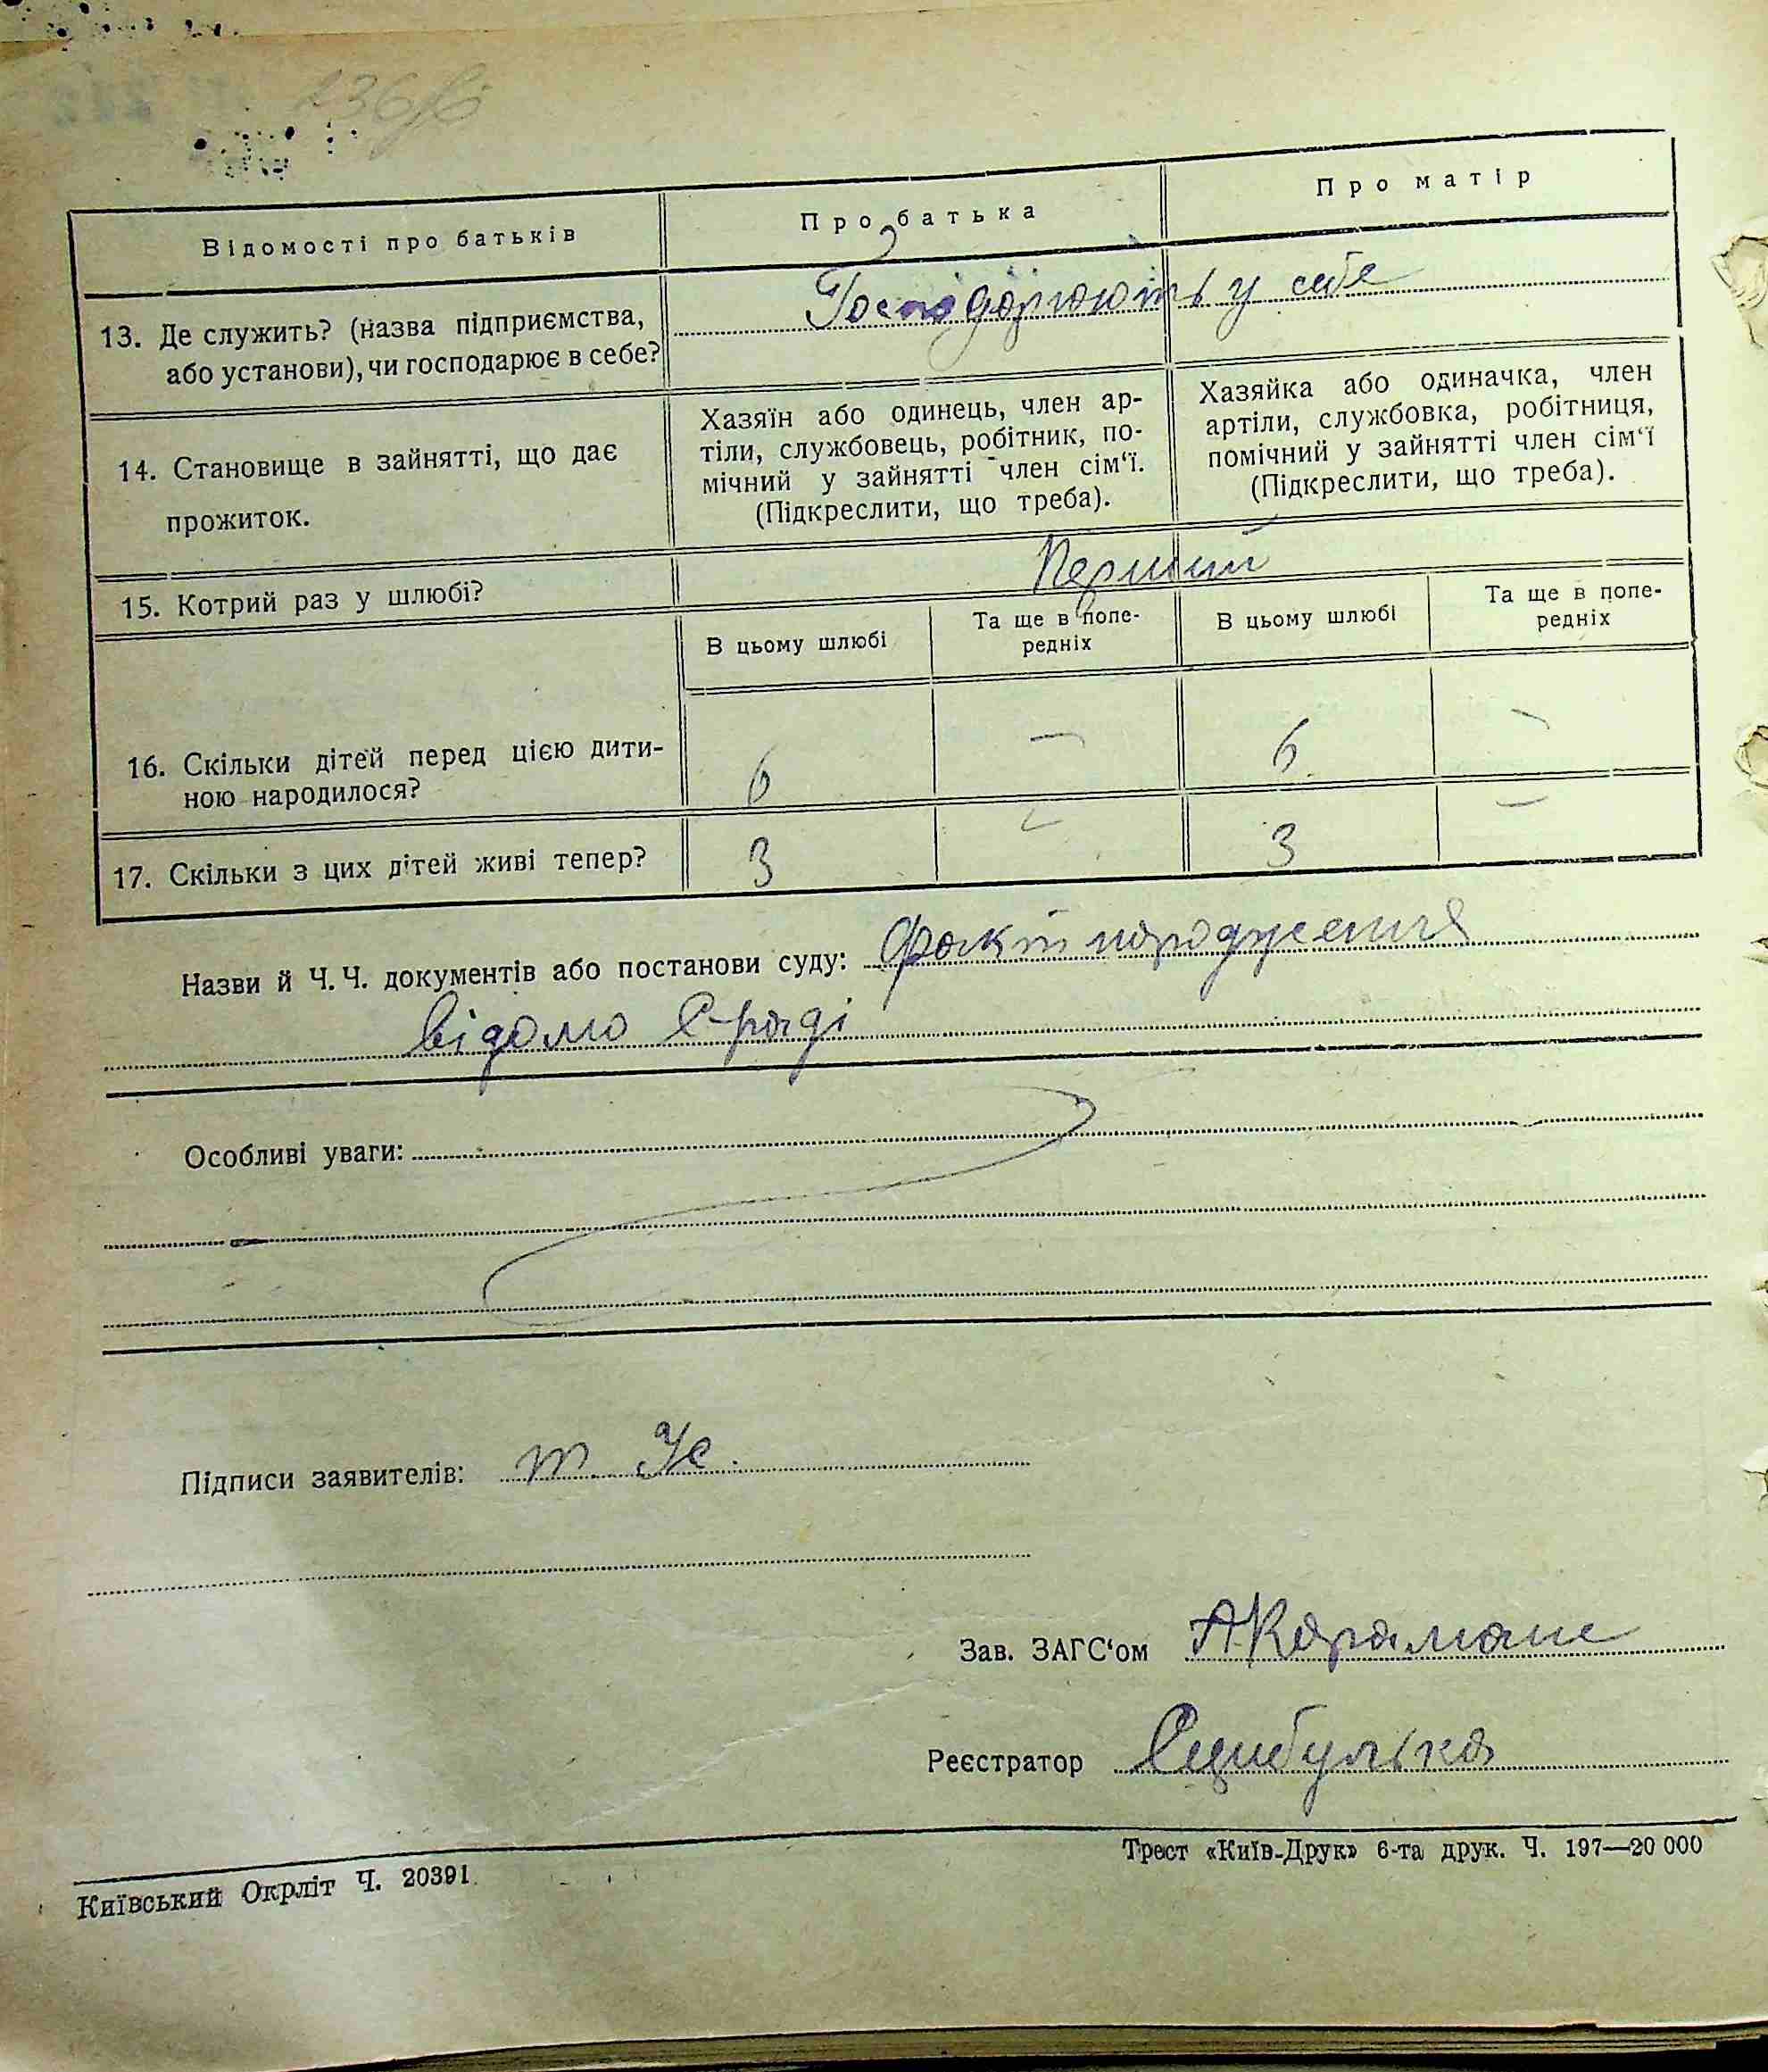 236 зв
Відомості про батьків
Про батька
Про матір
13. Де служить? (назва підприємства,
або установи), чи господарює в себе?
Господорюють у себе
14. Становище в зайнятті, що дає
прожиток.
Хазяїн або одинець, член ар-
тіли, службовець, робітник, по-
мічний у зайнятті член сім‘ї.
(Підкреслити, що треба).
Хазяйка або одиначка, член
артіли, службовка, робітниця,
помічний у зайнятті член сім‘ї
(Підкреслити, що треба).
15. Котрий раз у шлюбі?
Перший
В цьому шлюбі
Та ще в попе-
редніх
В цьому шлюбі
Та ще в попе-
редніх
16. Скільки дітей перед цією дити-
ною народилося?
6 — 6 —
17. Скільки з цих дітей живі тепер?
3 — 3 —
Назви й Ч. Ч. документів або постанови суду: Факт народження
відомо С-раді
Особливі уваги:
Підписи заявителів:
Зав. ЗАГС‘ом
Реєстратор Сцибулька
Київський Окрліт Ч. 20391.
Трест «Київ-Друк» 6-та друк. Ч. 197—20 000